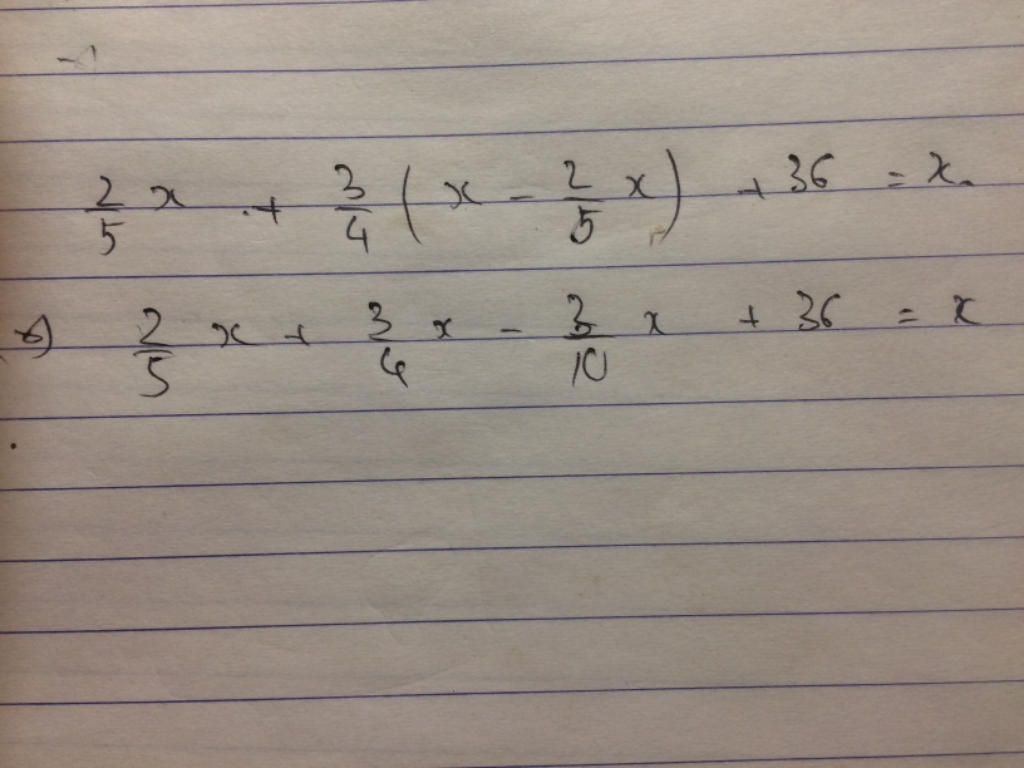 2/5 x + 3/4 ( x - 2/5 x ) + 36 = x.
2/5 x + 3/4 x - 3/10 x + 36 = x